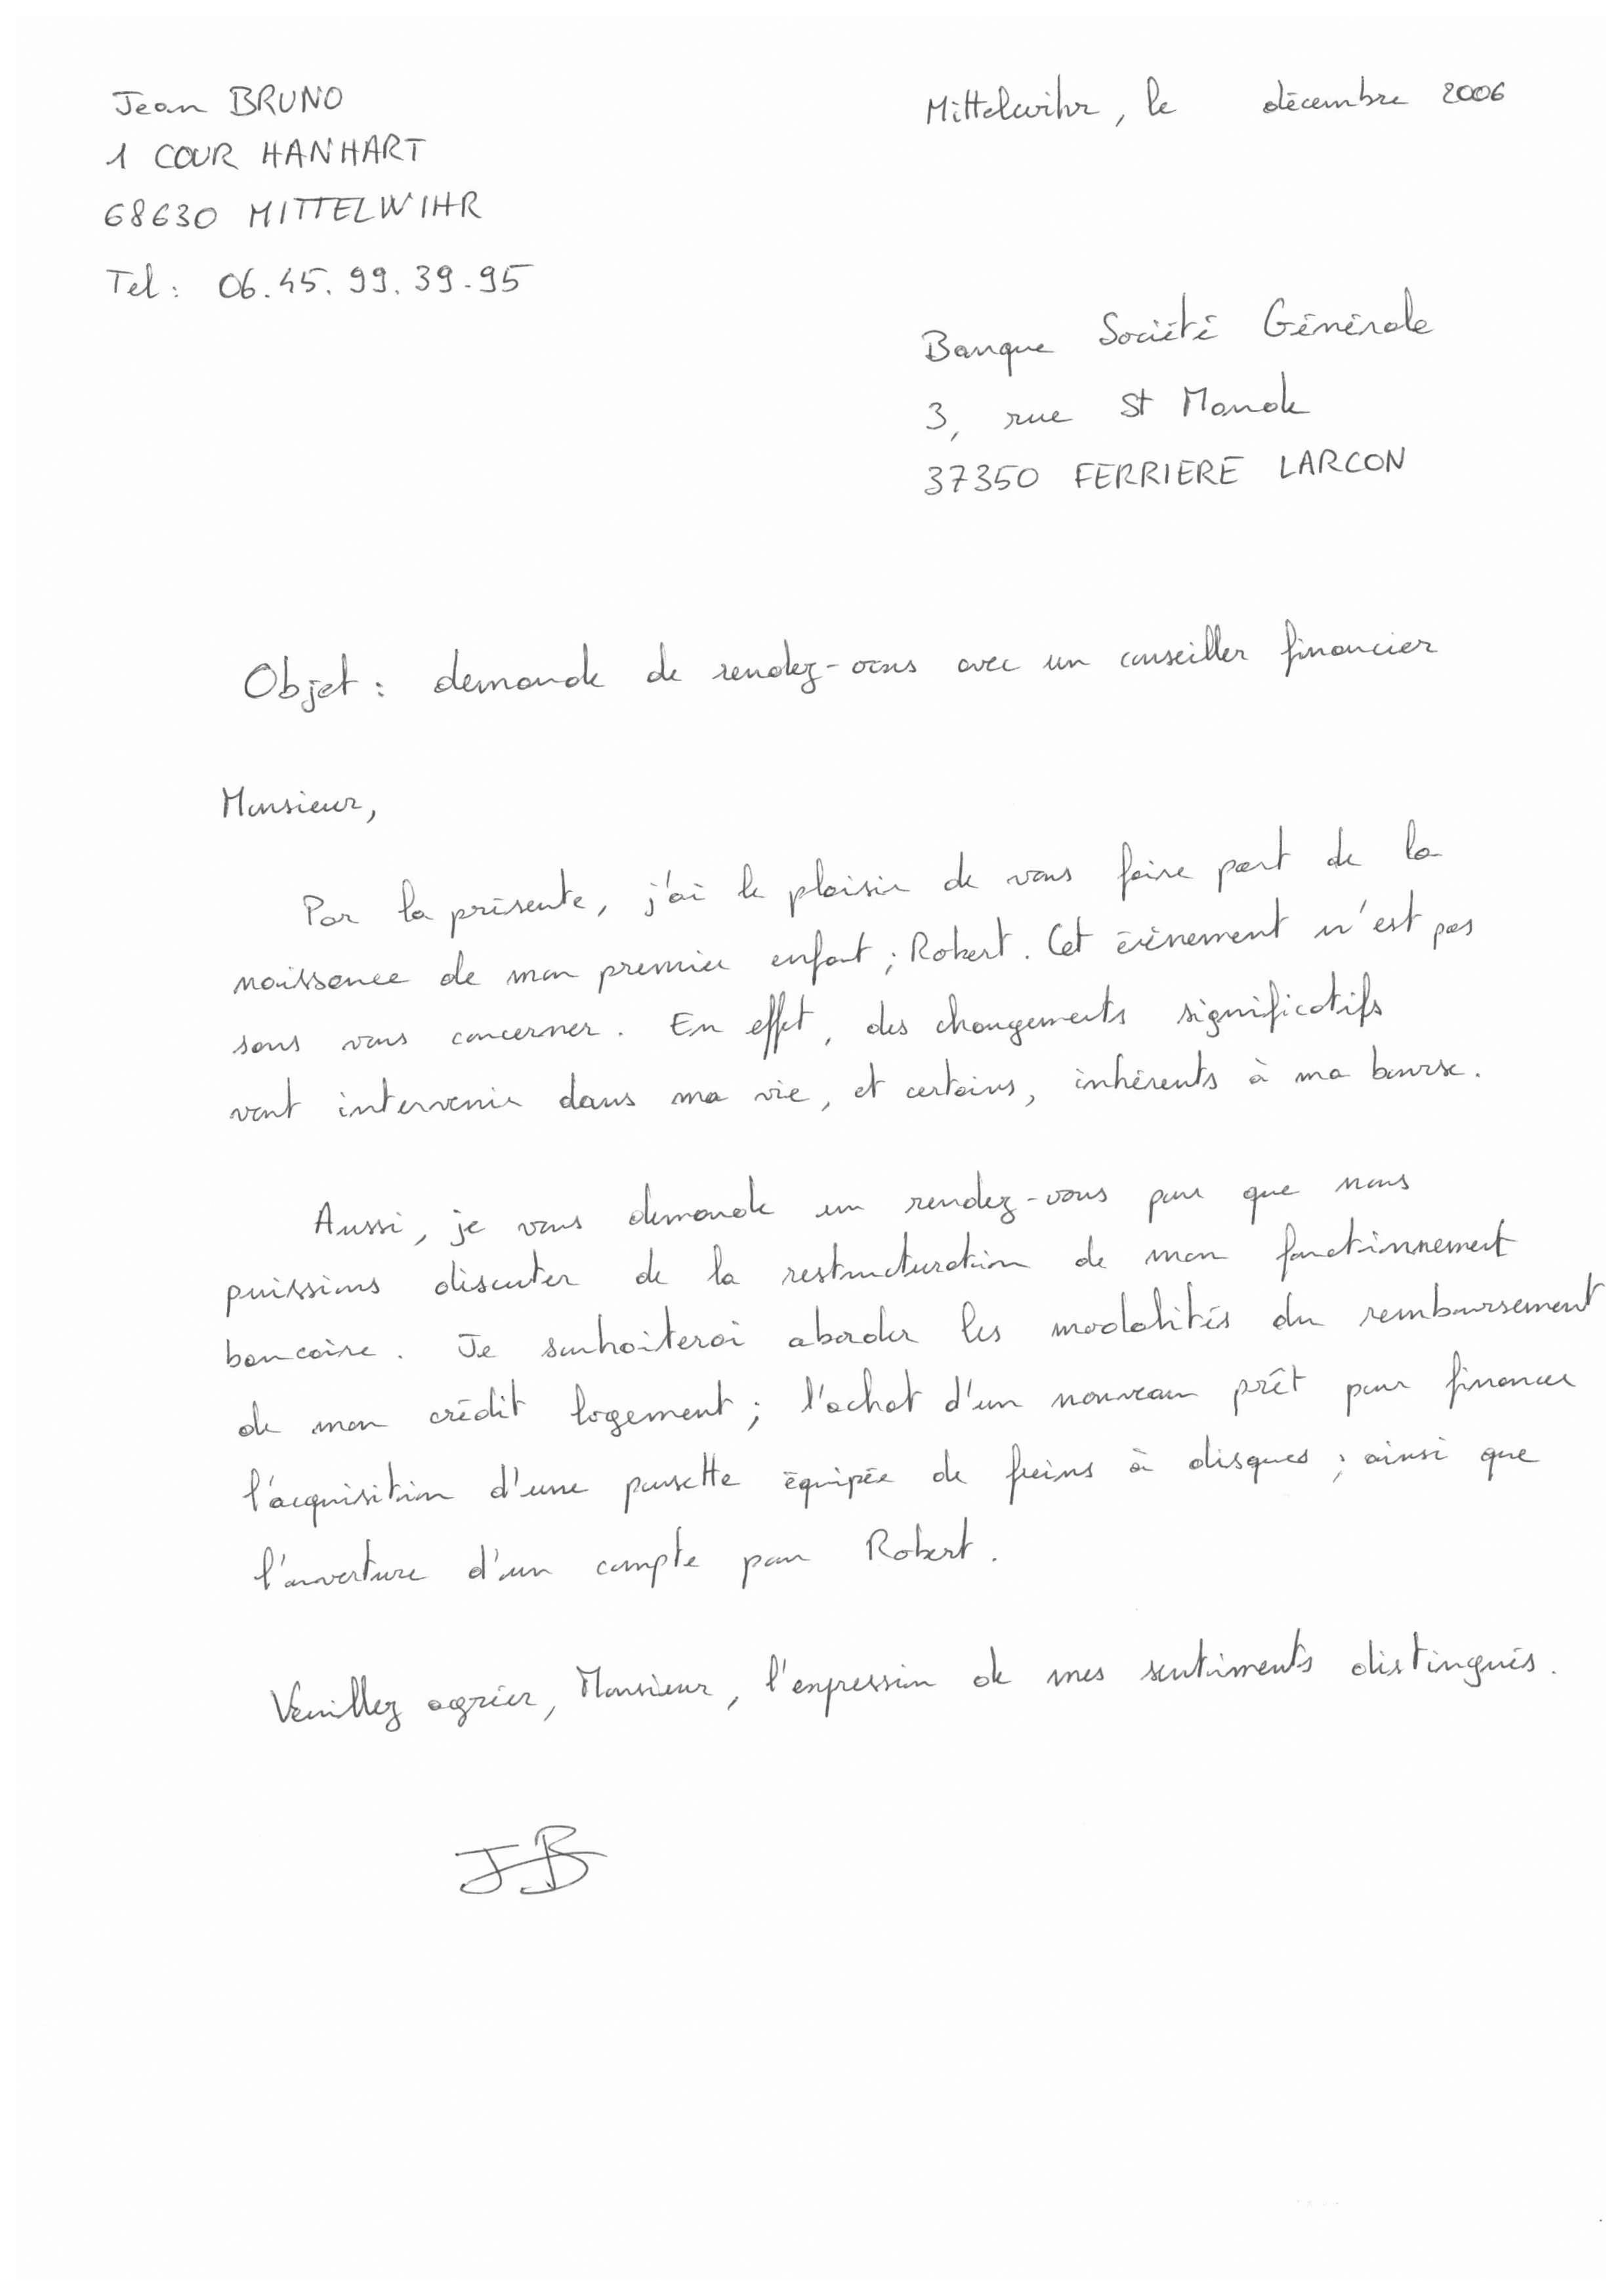 Jean BRUNO
1 COUR HANHART
68630 MITTELWIHR
Tel : 06.45.99.39.95
Mittelwihr, le décembre 2006
Banque Société Générale
3, rue St Mande
37350 FERRIERE LARCON
Objet : demande de rendez-vous avec un conseiller financier
Monsieur,
Par la présente, j'ai le plaisir de vous faire part de la
naissance de mon premier enfant ; Robert. Cet évènement n'est pas
sans vous concerner. En effet, des changements significatifs
vont intervenir dans ma vie, et certains, inhérents à ma bourse.
Aussi, je vous demande un rendez-vous pour que nous
puissions discuter de la restructuration de mon fonctionnement
bancaire. Je souhaiterai aborder les modalités du remboursement
de mon crédit logement ; l'achat d'un nouveau prêt pour financer
l'acquisition d'une pousette équipée de freins à disques ; ainsi que
l'ouverture d'un compte pour Robert.
Veuillez agréer, Monsieur, l'expression de mes sentiments distingués.
JB